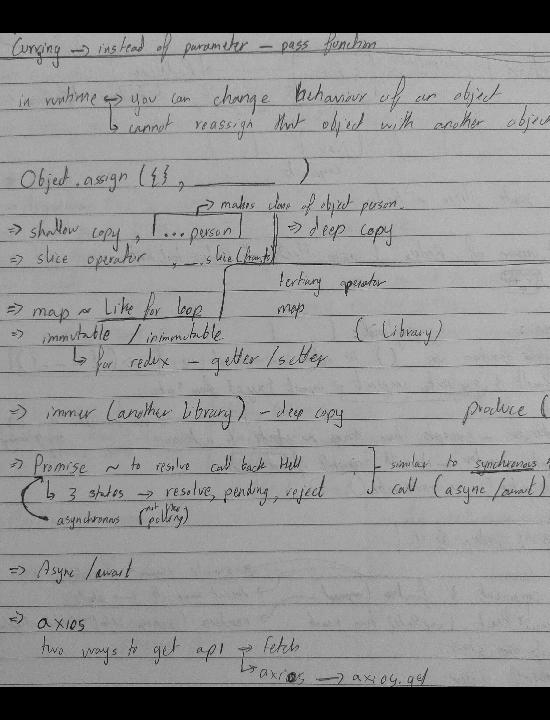 Currying → instead of parameter - pass function
in runtime ↔ you can change behaviour of an object
↳ cannot reassign that object with another object
Object.assign ({}, ______ )
→ makes clone of object person.
⇒ shallow copy, [...person] ⇒ deep copy
⇒ slice operator, ...slice(
tertiary operator
⇒ map ~ Like for loop map
⇒ immutable / inimmutable (Library)
↳ for redux - getter/setter
⇒ immer (another library) - deep copy produce (
⇒ Promise ~ to resolve call back Hell ] similar to synchronous
↳ 3 states → resolve, pending, reject call (async/await)
asynchronous (not like polling)
⇒ Async / await
⇒ axios
two ways to get api → fetch
↳ axios → axios.get